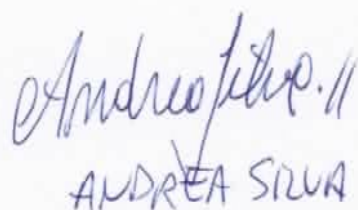 Andrea Silva.//
ANDREA SILVA